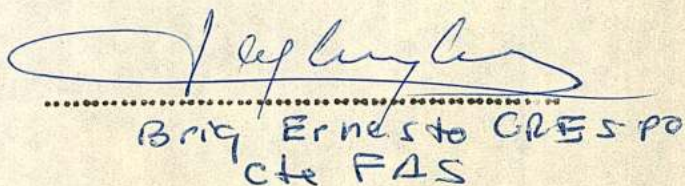 Brig Ernesto CRESPO
Cte FAS